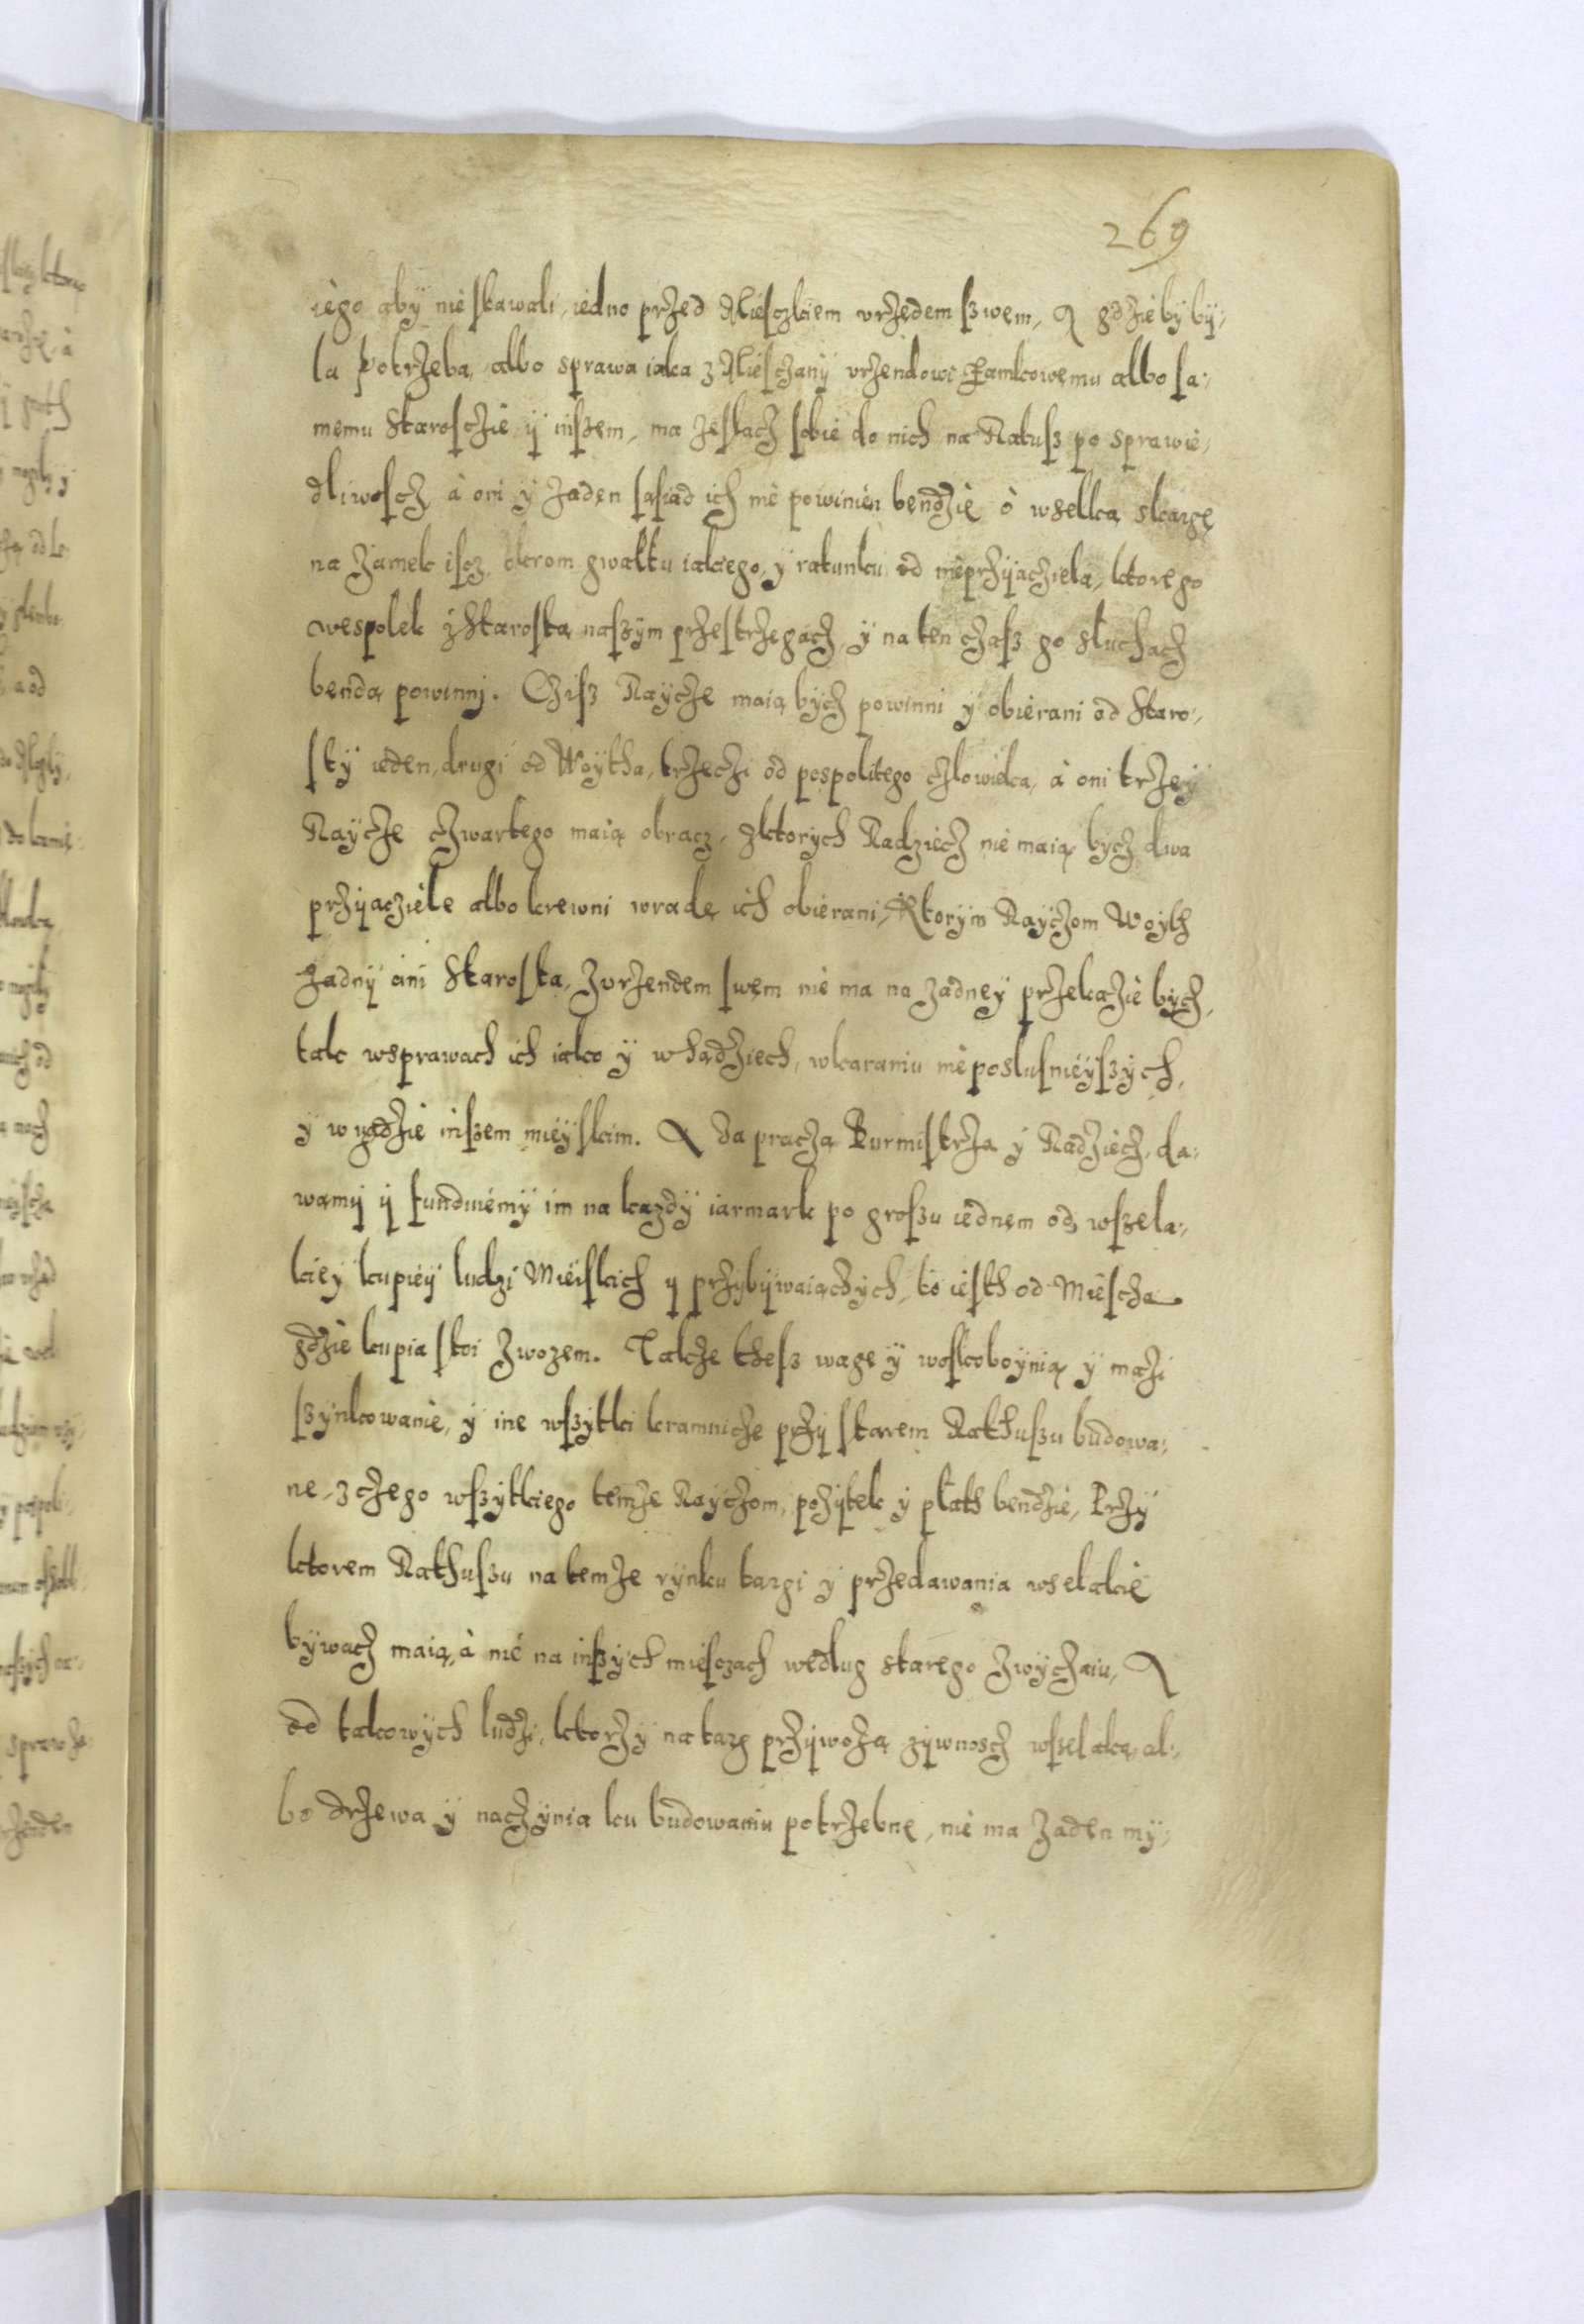 269
iego aby nie stawali, iedno przed Miesczkiem vrzędem szwem, A gdzieby by-
la potrzeba, albo sprawa iaka z Miesczany vrzendowi Zamkowemu albo sa-
memu Starosczie y inszem, ma zeslacz sobie do nich na Ratusz po sprawie-
dliwoscz, à oni y zaden sąsiad ich nie powinien bendzie ò wselką skargę
na zamek iscz, okrom gwałtu iakiego, y ratunku od nieprzyiacziela, ktorego
wespolek z Starostą naszym przestrzegacz, y na ten czasz go słuchacz
bendą powinni. Czisz Raycze maią bycz powinni y obierani od Staro-
sty ieden, drugi od Woytha, trzeczi od pospolitego czlowieka, à oni trzey
Raycze czwartego maią obracz, z ktorych Radziecz nie maią bycz dwa
przyacziele albo krewni w radę ich obierani, Ktorym Rayczom Woyth
żadny ani Starosta, z vrzendem swem nie ma na zadney przekazie bycz,
tak w sprawach ich iako y w sądziech, w karaniu nieposlusnieyszych,
y w rządzie inszem mieyskim. A za praczą Burmistrza y Radziecz, da-
wamy y funduiemy im na każdy iarmark po groszu iednem od wszela-
kiey kupiey ludzi Mieiskich y przybywaiączych, to iesth od Miescza
gdzie kupia stoi z wozem. Takze thesz wagę y woskoboynią y mazi
szynkowanie, y ine wszytki kramnicze przy starem Rathuszu budowa-
ne, z czego wszytkiego temze Rayczom, pożytek y płath bendzie, Przy
ktorem Rathuszu na temze rynku targi y przedawania wselakie
bywacz maią, à nie na inszych miesczach według starego zwyczaiu, A
od takowych ludzi, ktorzy na targ przywożą zywnoscz wszelaką al-
bo drzewa y naczynia ku budowaniu potrzebne, nie ma zaden my-